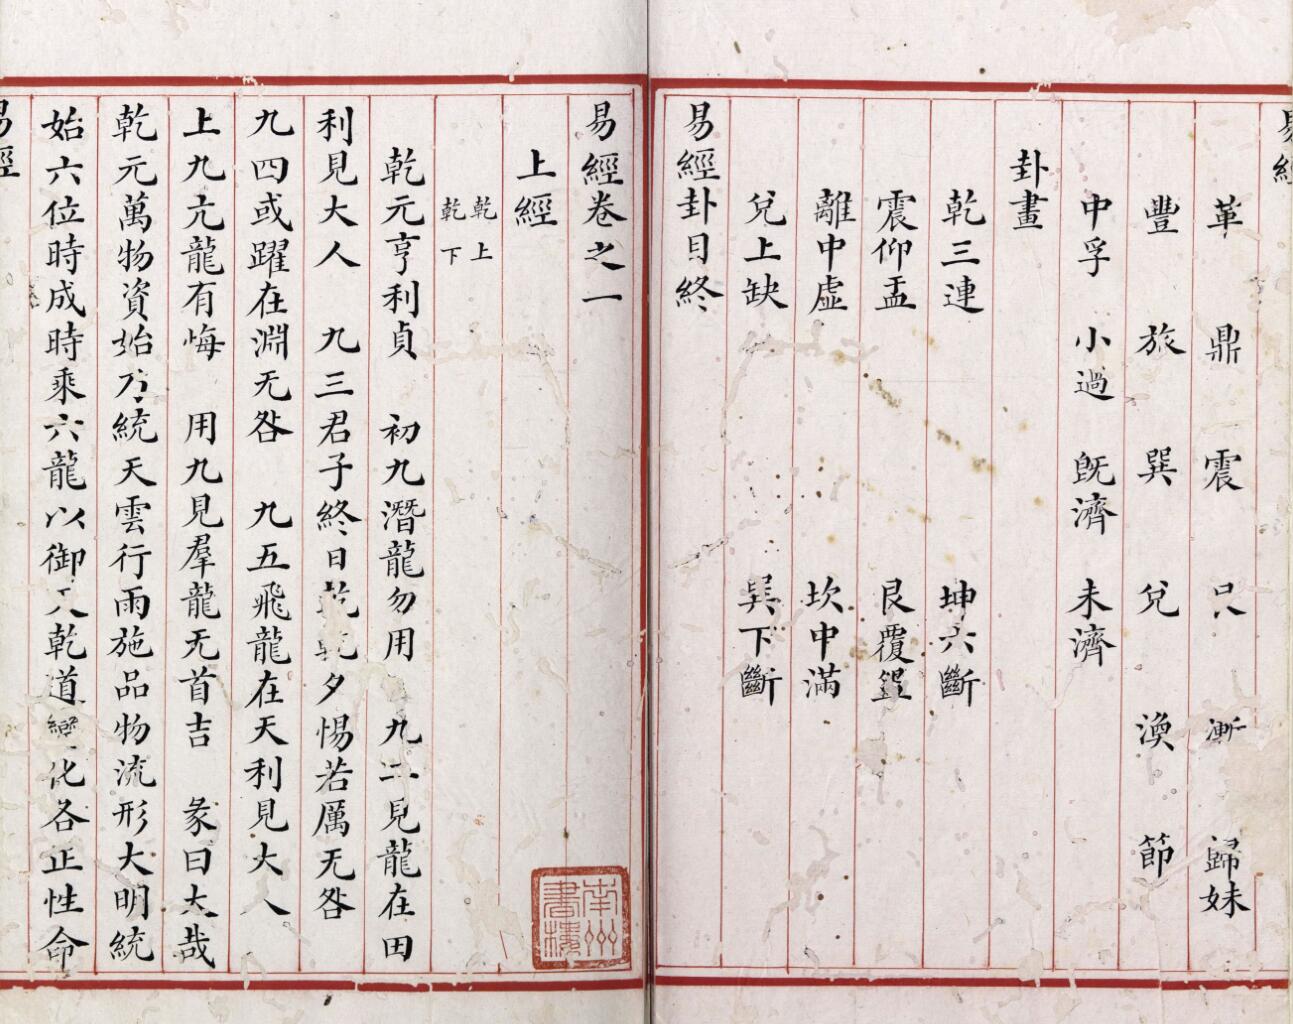 革 鼎 震 艮 漸 歸妹
豐 旅 巽 兌 渙 節
中孚 小過 既濟 未濟
卦畫
乾三連 坤六斷
震仰盂 艮覆盌
離中虛 坎中滿
兌上缺 巽下斷
易經卦目終
易經卷之一
上經
乾上
乾下
乾元亨利貞 初九潛龍勿用 九二見龍在田
利見大人 九三君子終日乾乾夕惕若厲无咎
九四或躍在淵无咎 九五飛龍在天利見大人
上九亢龍有悔 用九見羣龍无首吉 彖曰大哉
乾元萬物資始乃統天雲行雨施品物流形大明統
始六位時成時乘六龍以御天乾道變化各正性命
易經
南州書樓